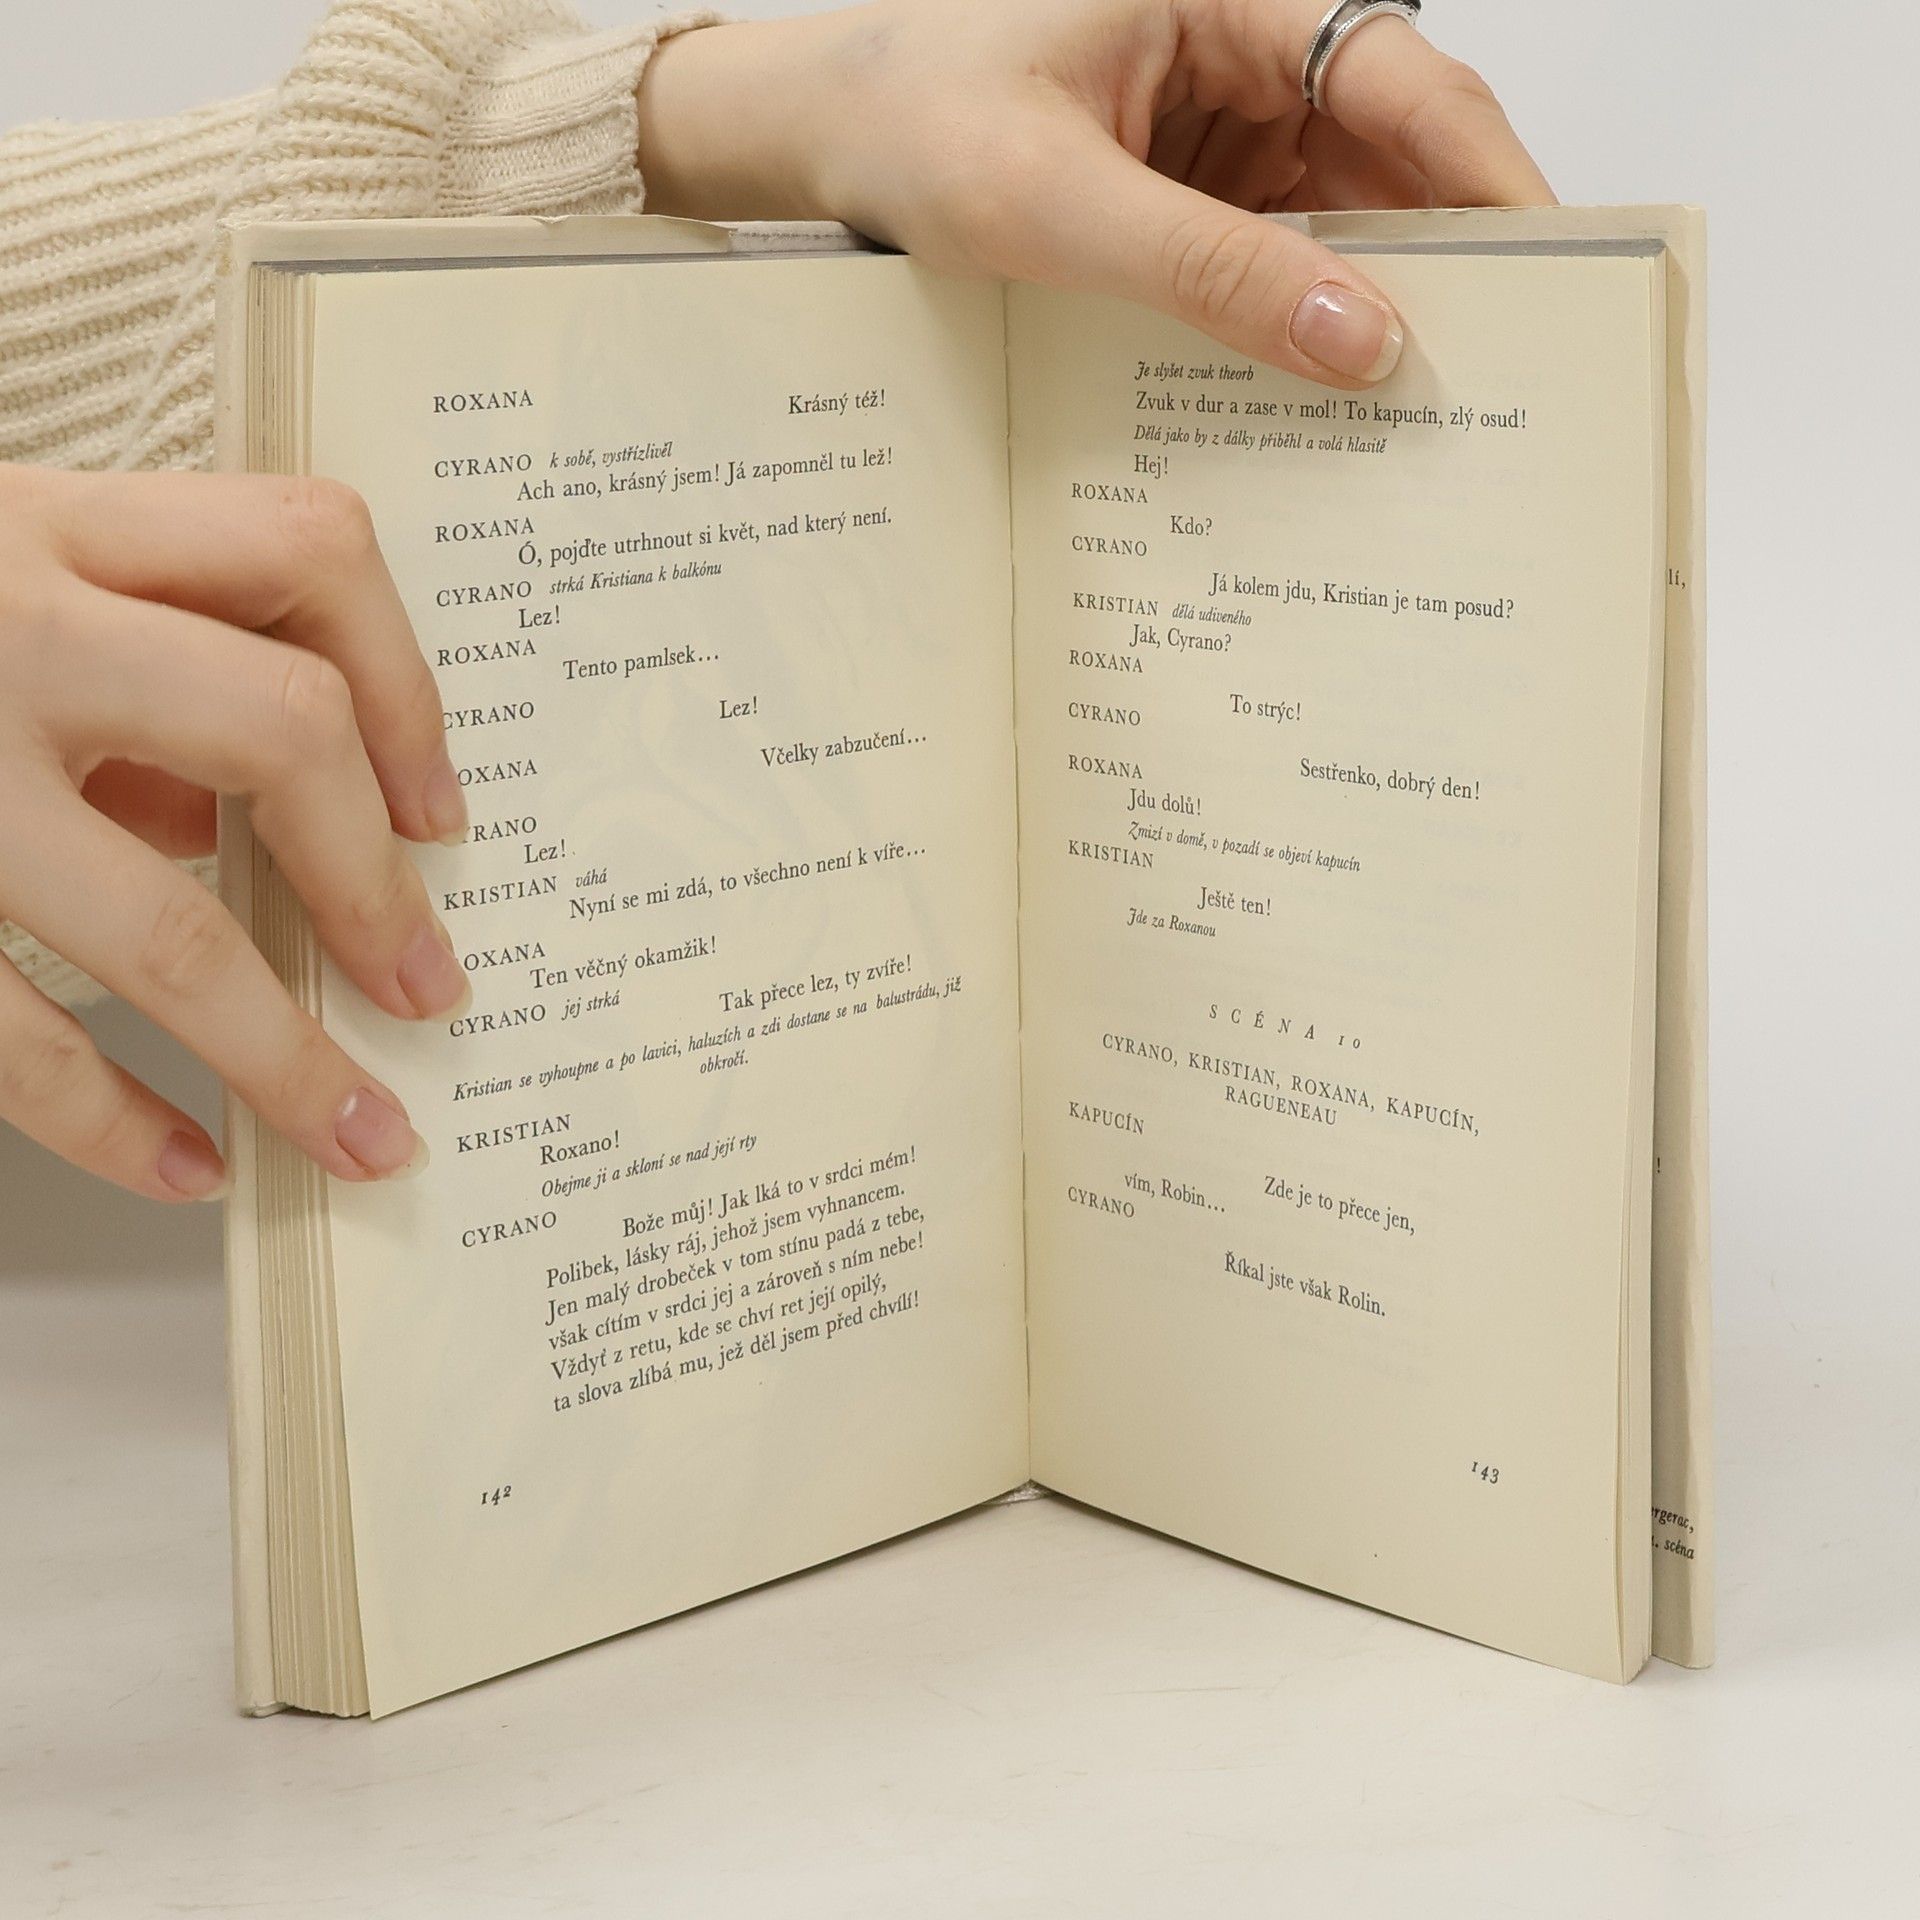 ROXANA
Krásný též!
CYRANO k sobě, vystřízlivěl
Ach ano, krásný jsem! Já zapomněl tu lež!
ROXANA
Ó, pojďte utrhnout si květ, nad který není.
CYRANO strká Kristiana k balkónu
Lez!
ROXANA
Tento pamlsek...
CYRANO
Lez!
OXANA
Včelky zabzučení...
YRANO
Lez!
KRISTIAN váhá
Nyní se mi zdá, to všechno není k víře...
OXANA
Ten věčný okamžik!
CYRANO jej strká
Tak přece lez, ty zvíře!
Kristian se vyhoupne a po lavici, haluzích a zdi dostane se na balustrádu, již
obkročí.
KRISTIAN
Roxano!
Obejme ji a skloní se nad její rty
CYRANO
Bože můj! Jak lká to v srdci mém!
Polibek, lásky ráj, jehož jsem vyhnancem.
Jen malý drobeček v tom stínu padá z tebe,
však cítím v srdci jej a zároveň s ním nebe!
Vždyť z retu, kde se chví ret její opilý,
ta slova zlíbá mu, jež děl jsem před chvílí!
142
Je slyšet zvuk theorb
Zvuk v dur a zase v mol! To kapucín, zlý osud!
Dělá jako by z dálky přiběhl a volá hlasitě
Hej!
ROXANA
Kdo?
CYRANO
Já kolem jdu, Kristian je tam posud?
KRISTIAN dělá udiveného
Jak, Cyrano?
ROXANA
To strýc!
CYRANO
Sestřenko, dobrý den!
ROXANA
Jdu dolů!
Zmizí v domě, v pozadí se objeví kapucín
KRISTIAN
Ještě ten!
Jde za Roxanou
SCÉNA 10
CYRANO, KRISTIAN, ROXANA, KAPUCÍN,
RAGUENEAU
KAPUCÍN
Zde je to přece jen,
vím, Robin...
CYRANO
Říkal jste však Rolin.
143
lí,
!
rgerac,
. scéna